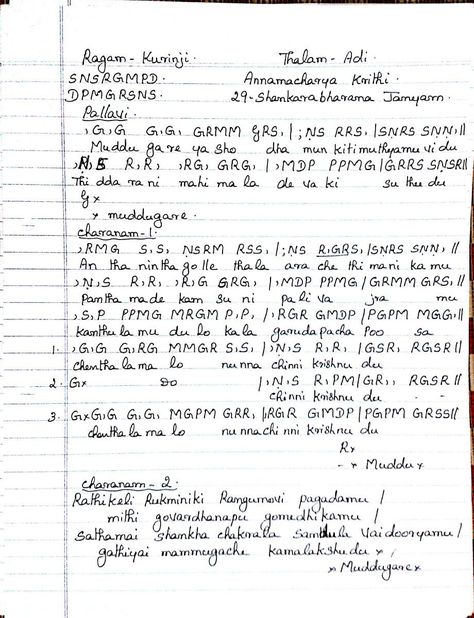 Ragam - Kurinji. Thalam - Adi.
SNSRGMPD. Annamacharya Krithi.
DPMGRSNS. 29 - Shankarabharana Janyam.
Pallavi.
,G,G G,G, GRMM GRS, |;NS RRS, |SNRS SNN,||
Muddu ga re ya sho dha mun kiti muthyamu vi du
R,R, ,RG, GRG, |,MDP PPMG|GRRS SNSR||
Thi dda ra ni mahi ma la de va ki su thu du
G×
× muddugare.
charanam - 1:
,RMG S,S, NSRM RSS, |;NS R,GRS, |SNRS SNN, ||
An tha nintha golle thala ara che thi mani ka mu
,N,S R,R, ,R,G GRG, |,MDP PPMG |GRMM GRS,||
Pantha made kam su ni pa li va jra mu
,S,P PPMG MRGM P,P, |,RGR GMDP |PGPM MGG,||
kanthu la mu du lo kala garudapacha Poo sa
1. ,G,G G,RG MMGR S,S, |,N,S R,R, |GSR, RGSR||
chenthalama lo nunna chinni krishnu du
2. G× Do |,N,S R,PM|GR,, RGSR||
chinni krishnu du - -
3. G×G,G G,G, MGPM GRR, |,RGR GMDP |PGPM GRSS||
chenthalamalo nunnachinni krishnu du
R×
- × Muddu×
charanam - 2
Rathikeli Rukminiki Rangumovi pagadamu |
mithi govardhanapu gomedhikamu |
Sathamai shankha chakrala Vaidooryamu |
gathiyai mammugache kamalakshudu ×,
× Muddugare×